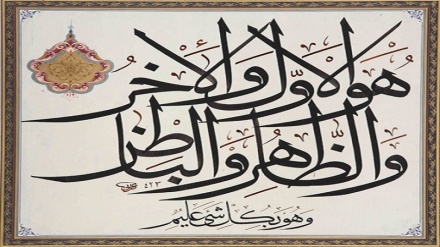 هُوَ الْأَوَّلُ وَالْأَخِرُ
وَالظَّاهِرُ وَالْبَاطِنُ
وَهُوَ بِكُلِّ شَیْءٍ عَلِیمٌ